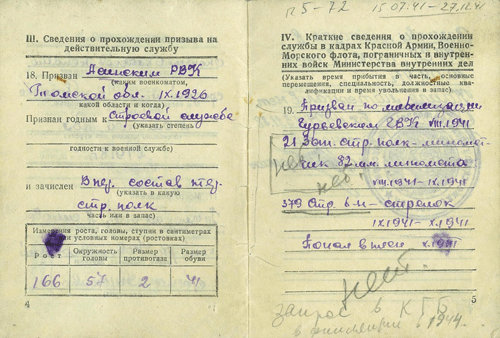 П5-72 15.07.41-27.12.41
III. Сведения о прохождении призыва на
действительную службу
18. Призван Асинским РВК
(каким военкоматом,
Томской обл. IX.1926
какой области и когда)
Признан годным к Строевой службе
(указать степень
годности к военной службе)
и зачислен В пер. состав
(указать в какую
стр. полк
часть или в запас)
Изменения роста, головы, ступни в сантиметрах
или условных номерах (ростовках)
Рост
Окружность головы
Размер противогаза
Размер обуви
166 57 2 41
4
IV. Краткие сведения о прохождении
службы в кадрах Красной Армии, Военно-
Морского флота, пограничных и внутрен-
них войск Министерства внутренних дел
(Указать время прибытия в часть, основные
перемещения, специальность, должностные ква-
лификации и время увольнения в запас)
19. Призван по мобилизации
Гурьевским ГВК VIII.1941
21 Зап. стр. полк - миномет-
чик 82 мм. миномета
нет
нет
VIII.1941 - IX.1941
579 Стр. б-н - стрелок
IX.1941 - X.1941
Попал в плен X.1941
нет.
5
запрос в КГБ
в 1944.